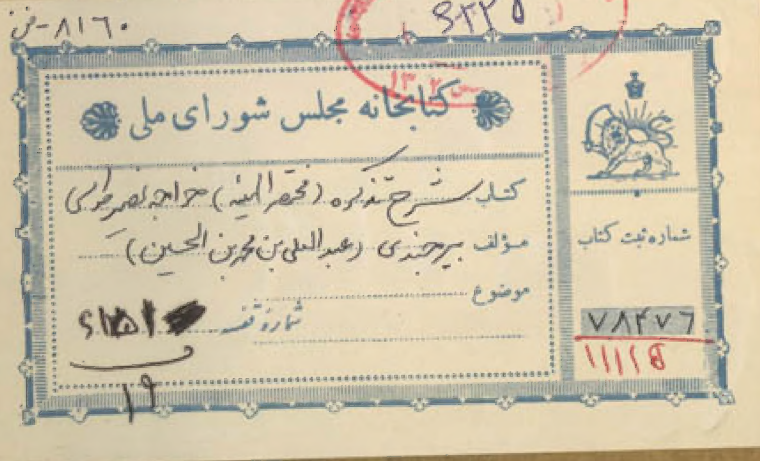 ۸۱۶۰-ف
کتابخانه مجلس شورای ملی
کتاب شرح تذکره (مختصر الهیئه) خواجه نصیر طوسی
مؤلف بیرجندی (عبدالعلی بن محمد بن الحسین)
موضوع
شماره قفسه
۱۹
شماره ثبت کتاب
۷۸۴۷۶